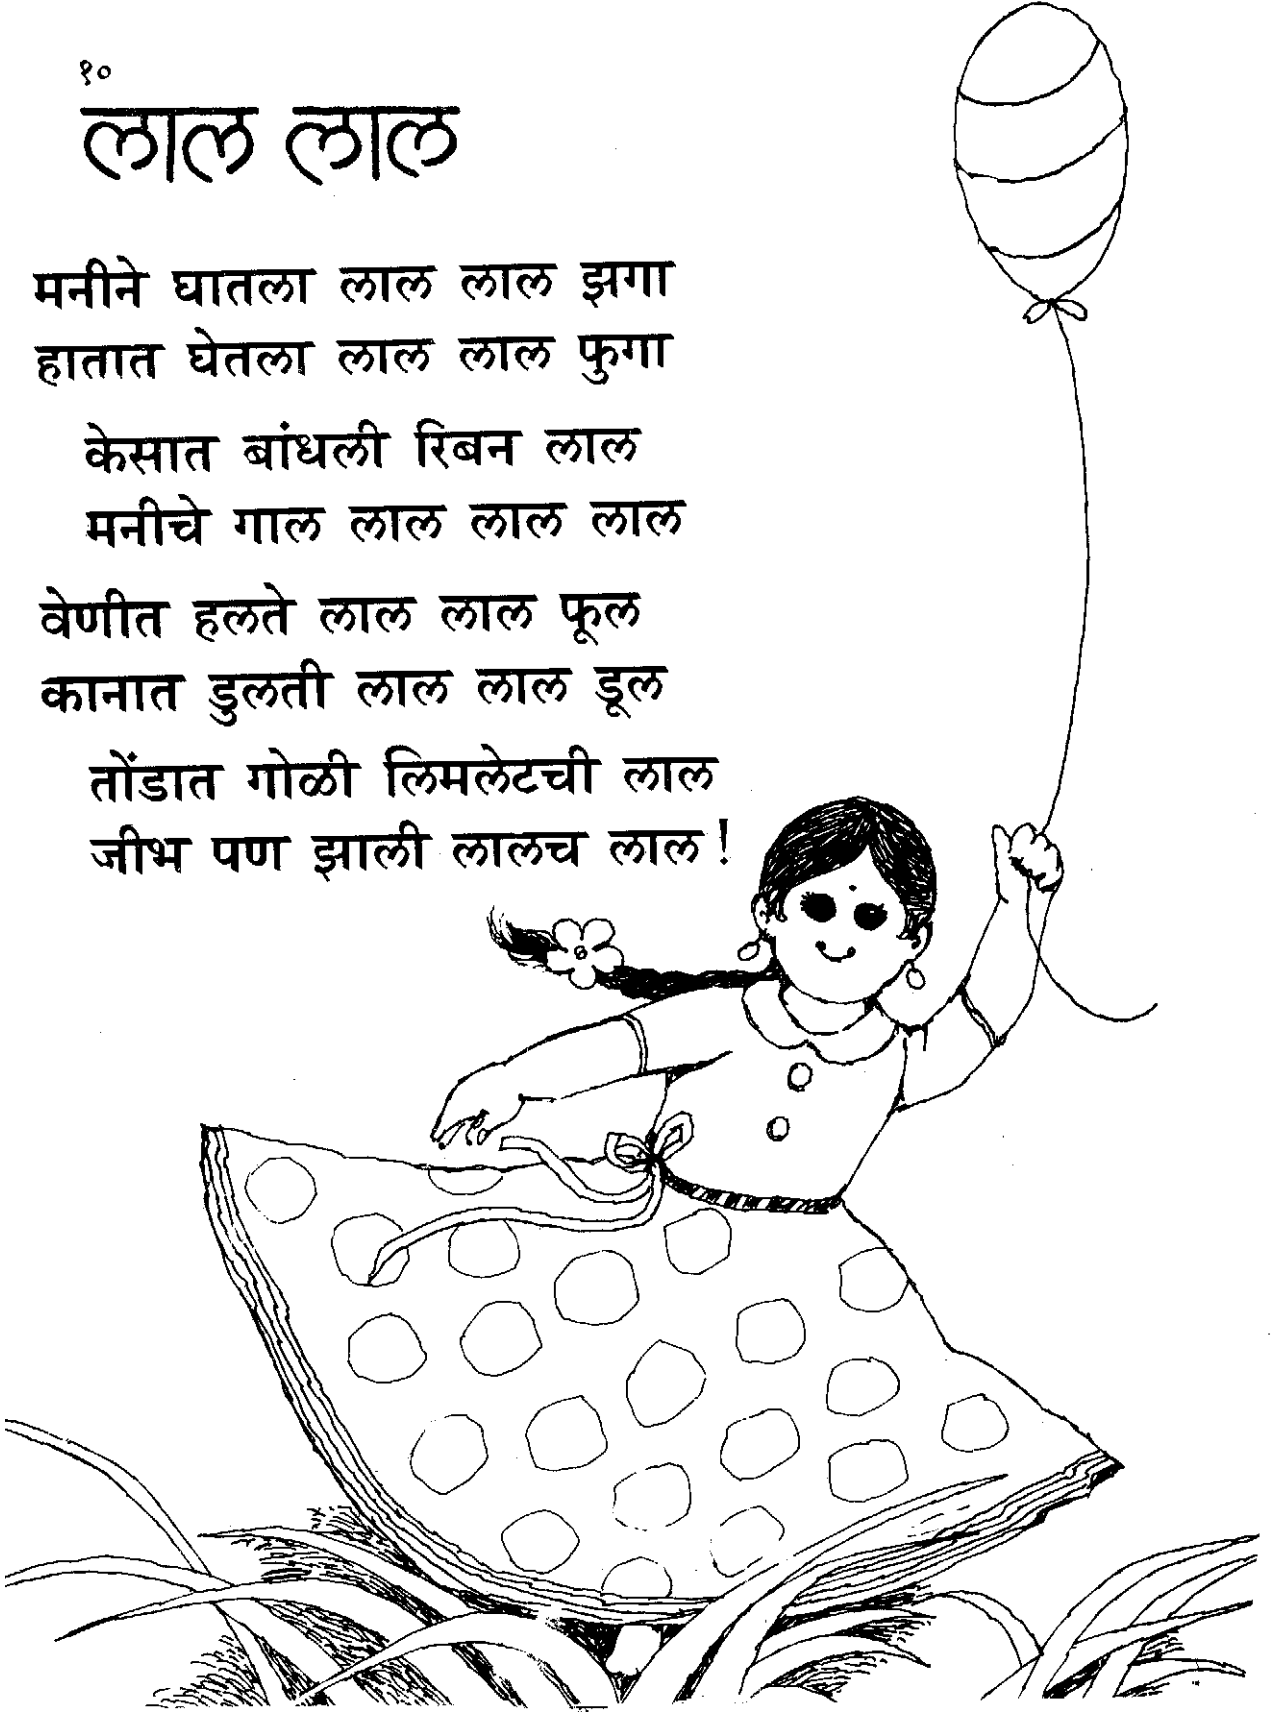 १०
लाल लाल
मनीने घातला लाल लाल झगा
हातात घेतला लाल लाल फुगा
केसात बांधली रिबन लाल
मनीचे गाल लाल लाल लाल
वेणीत हलते लाल लाल फूल
कानात डुलती लाल लाल डूल
तोंडात गोळी लिमलेटची लाल
जीभ पण झाली लालच लाल !